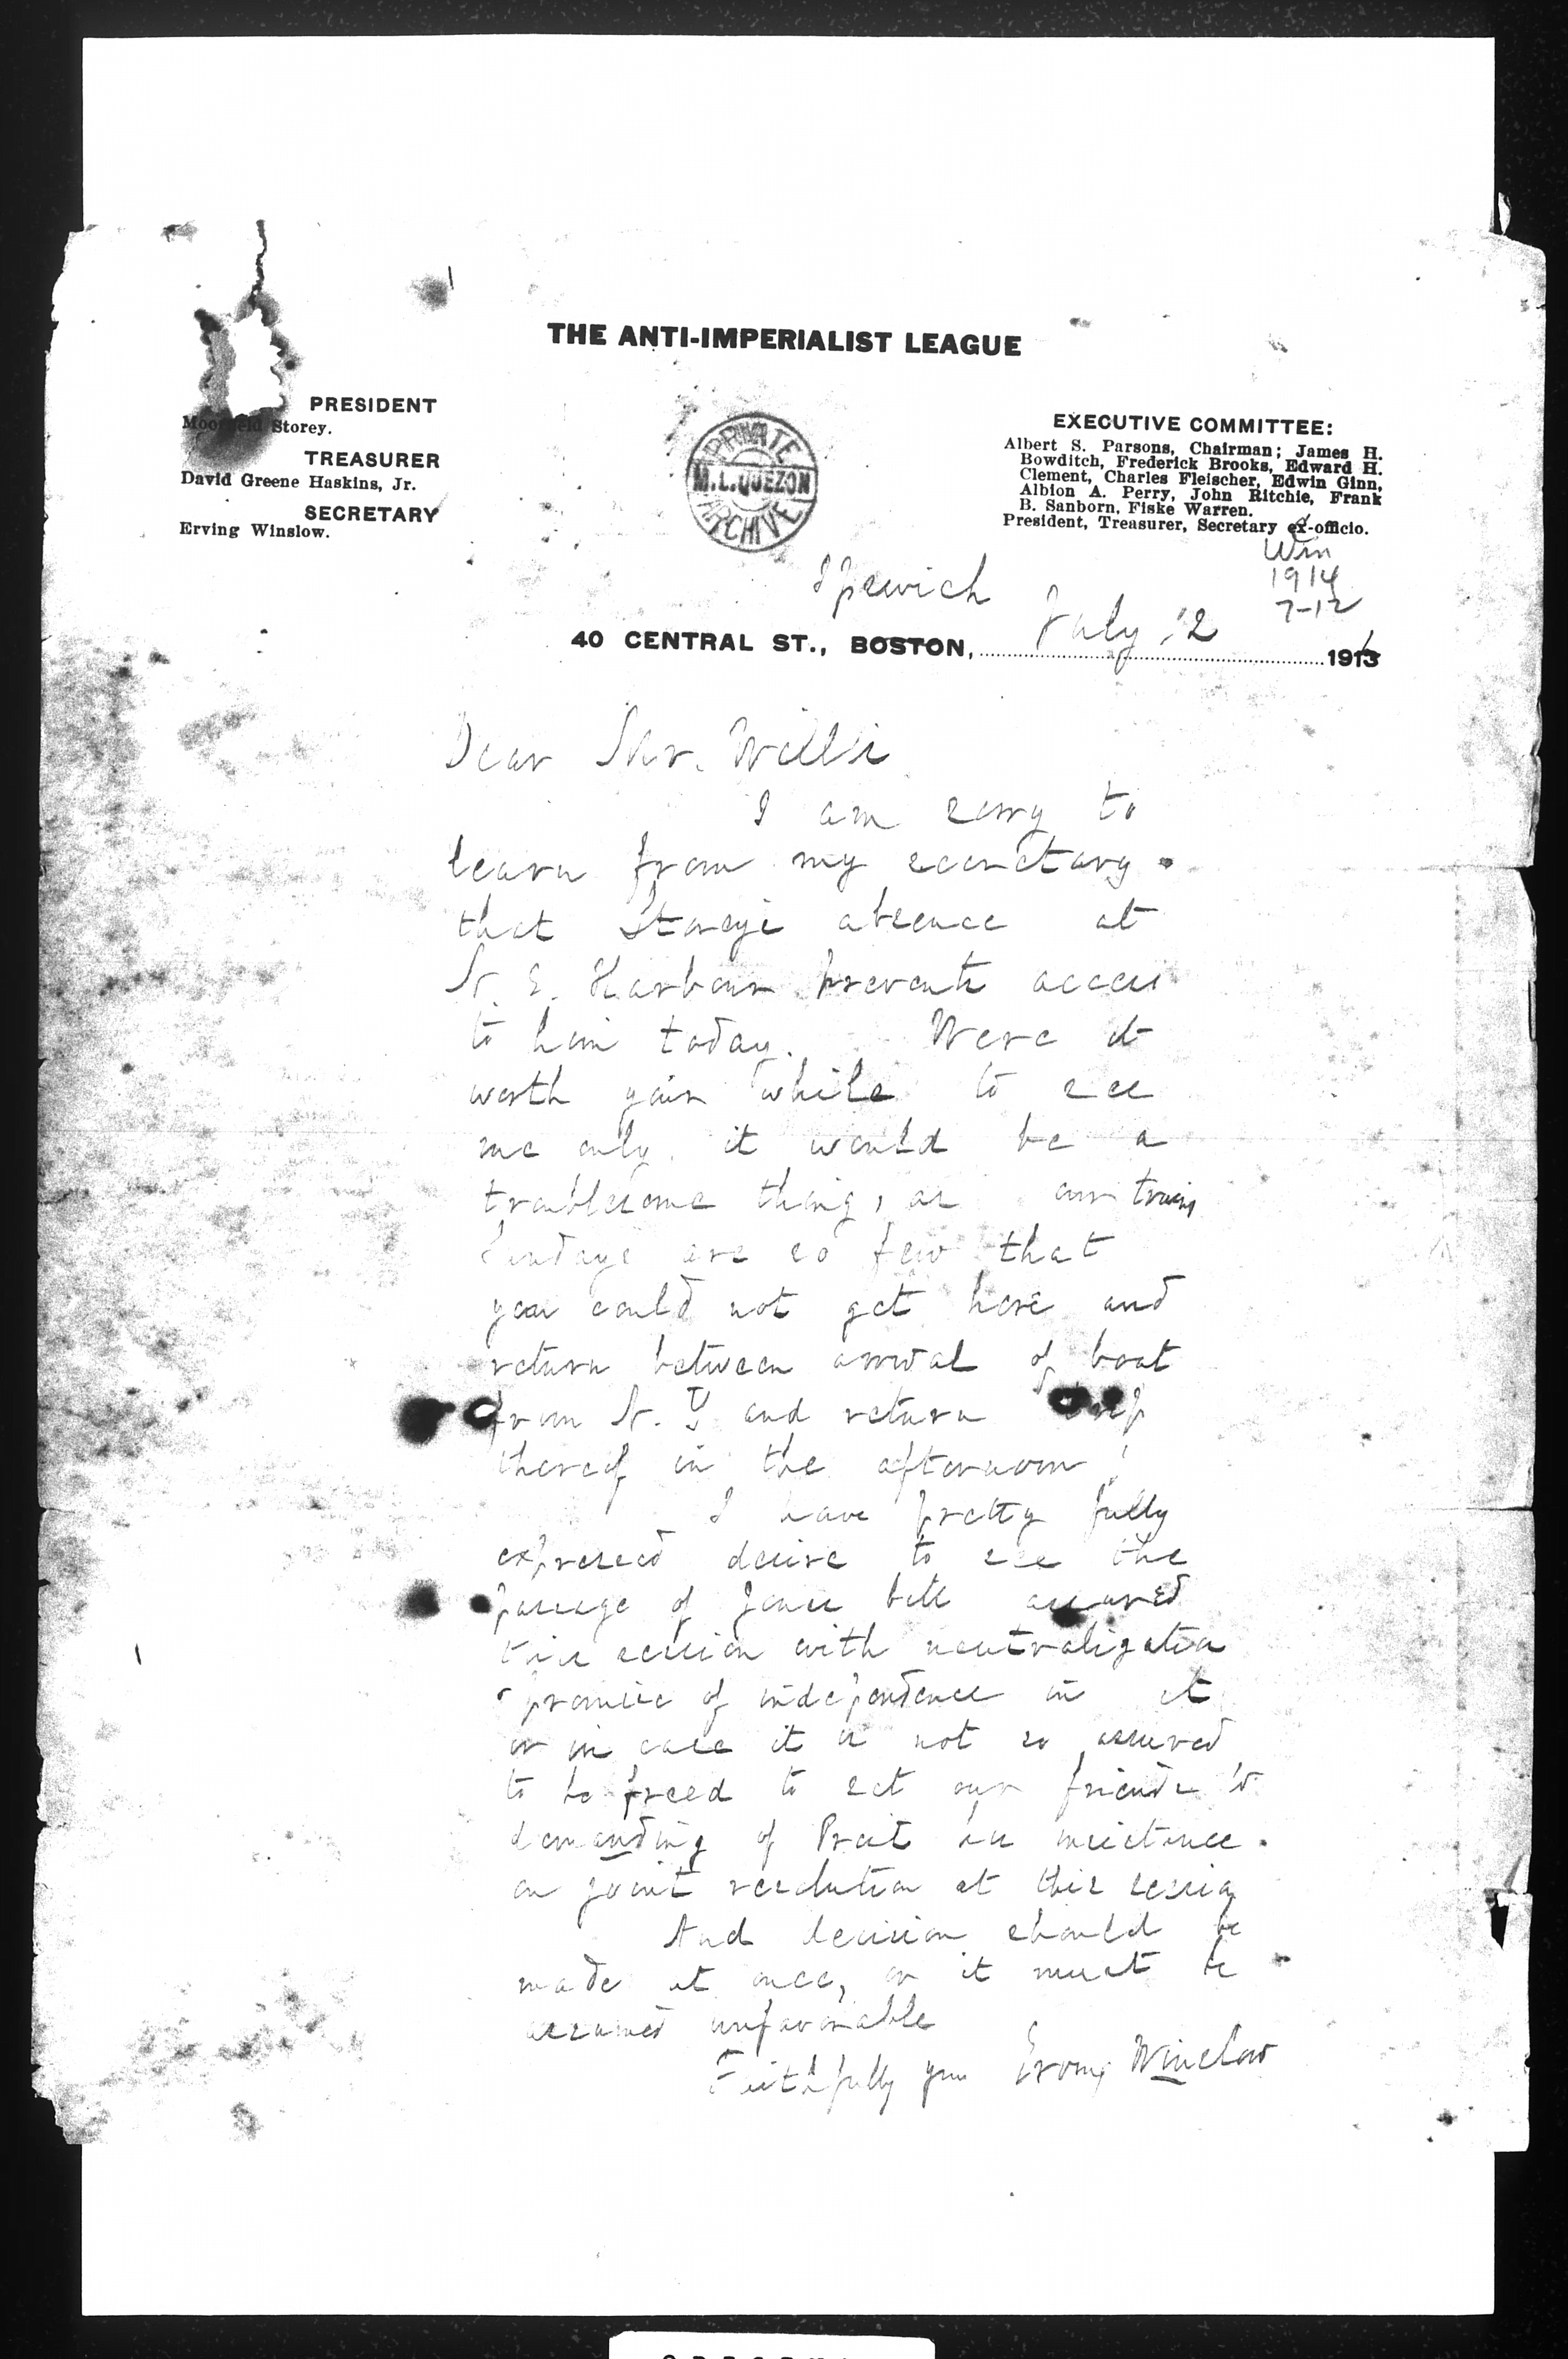 THE ANTI-IMPERIALIST LEAGUE
PRESIDENT
Moorfield Storey.
TREASURER
David Greene Haskins, Jr.
SECRETARY
Erving Winslow.
PRIVATE
M.L.QUEZON
ARCHIVE
EXECUTIVE COMMITTEE:
Albert S. Parsons, Chairman; James H.
Bowditch, Frederick Brooks, Edward H.
Clement, Charles Fleischer, Edwin Ginn,
Albion A. Perry, John Ritchie, Frank
B. Sanborn, Fiske Warren.
President, Treasurer, Secretary ex-officio.
Win
1914
7-12
Ipswich
40 CENTRAL ST., BOSTON, July 12 191
Dear Mr. Willis
I am sorry to
learn from my secretary
that Storey's absence at
N. E. Harbour prevents access
to him today. Were it
worth your while to see
me only, it would be a
troublesome thing, as our trains
Sundays are so few that
you could not get here and
return between arrival of boat
from N. Y and return trip
thereof in the afternoon!
I have pretty fully
expressed desire to see the
passage of Jones bill assured
this session with neutralization
promise of independence in it
or in case it is not so assured
to be freed to set our friends to
demanding of Prest his insistence
on joint resolution at this session
And decision should be
made at once, or it must be
assumed unfavorable
Faithfully yrs Erving Winslow